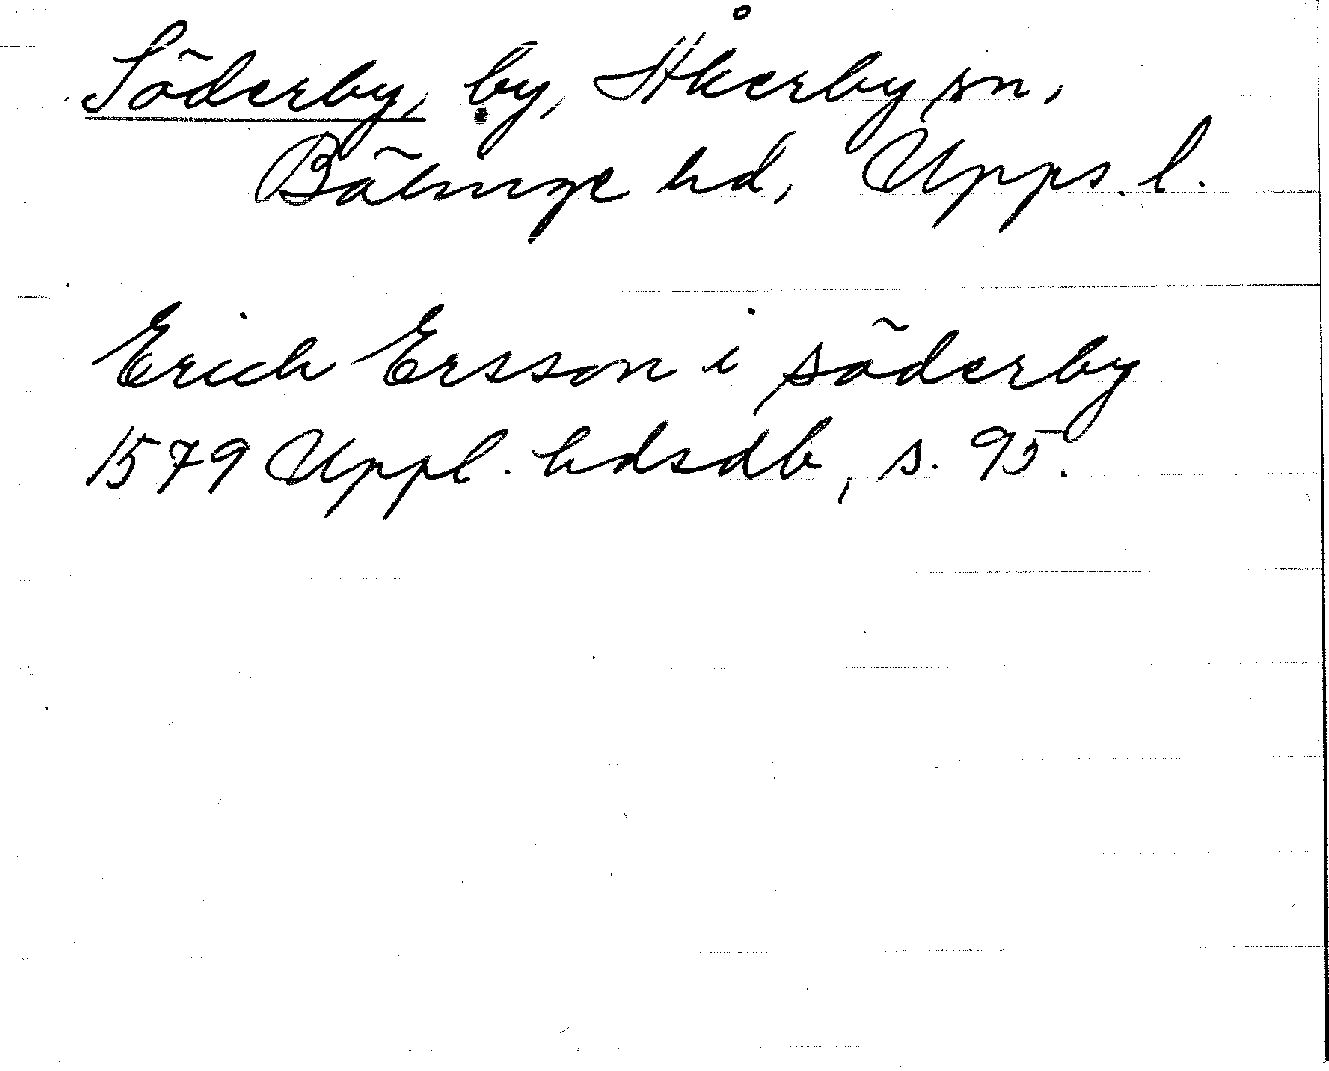 Söderby, by, Åkerby sn,
Bälinge hd, Upps. l.
Erich Ersson i söderby
1579 Uppl. hdsdb, s. 95.